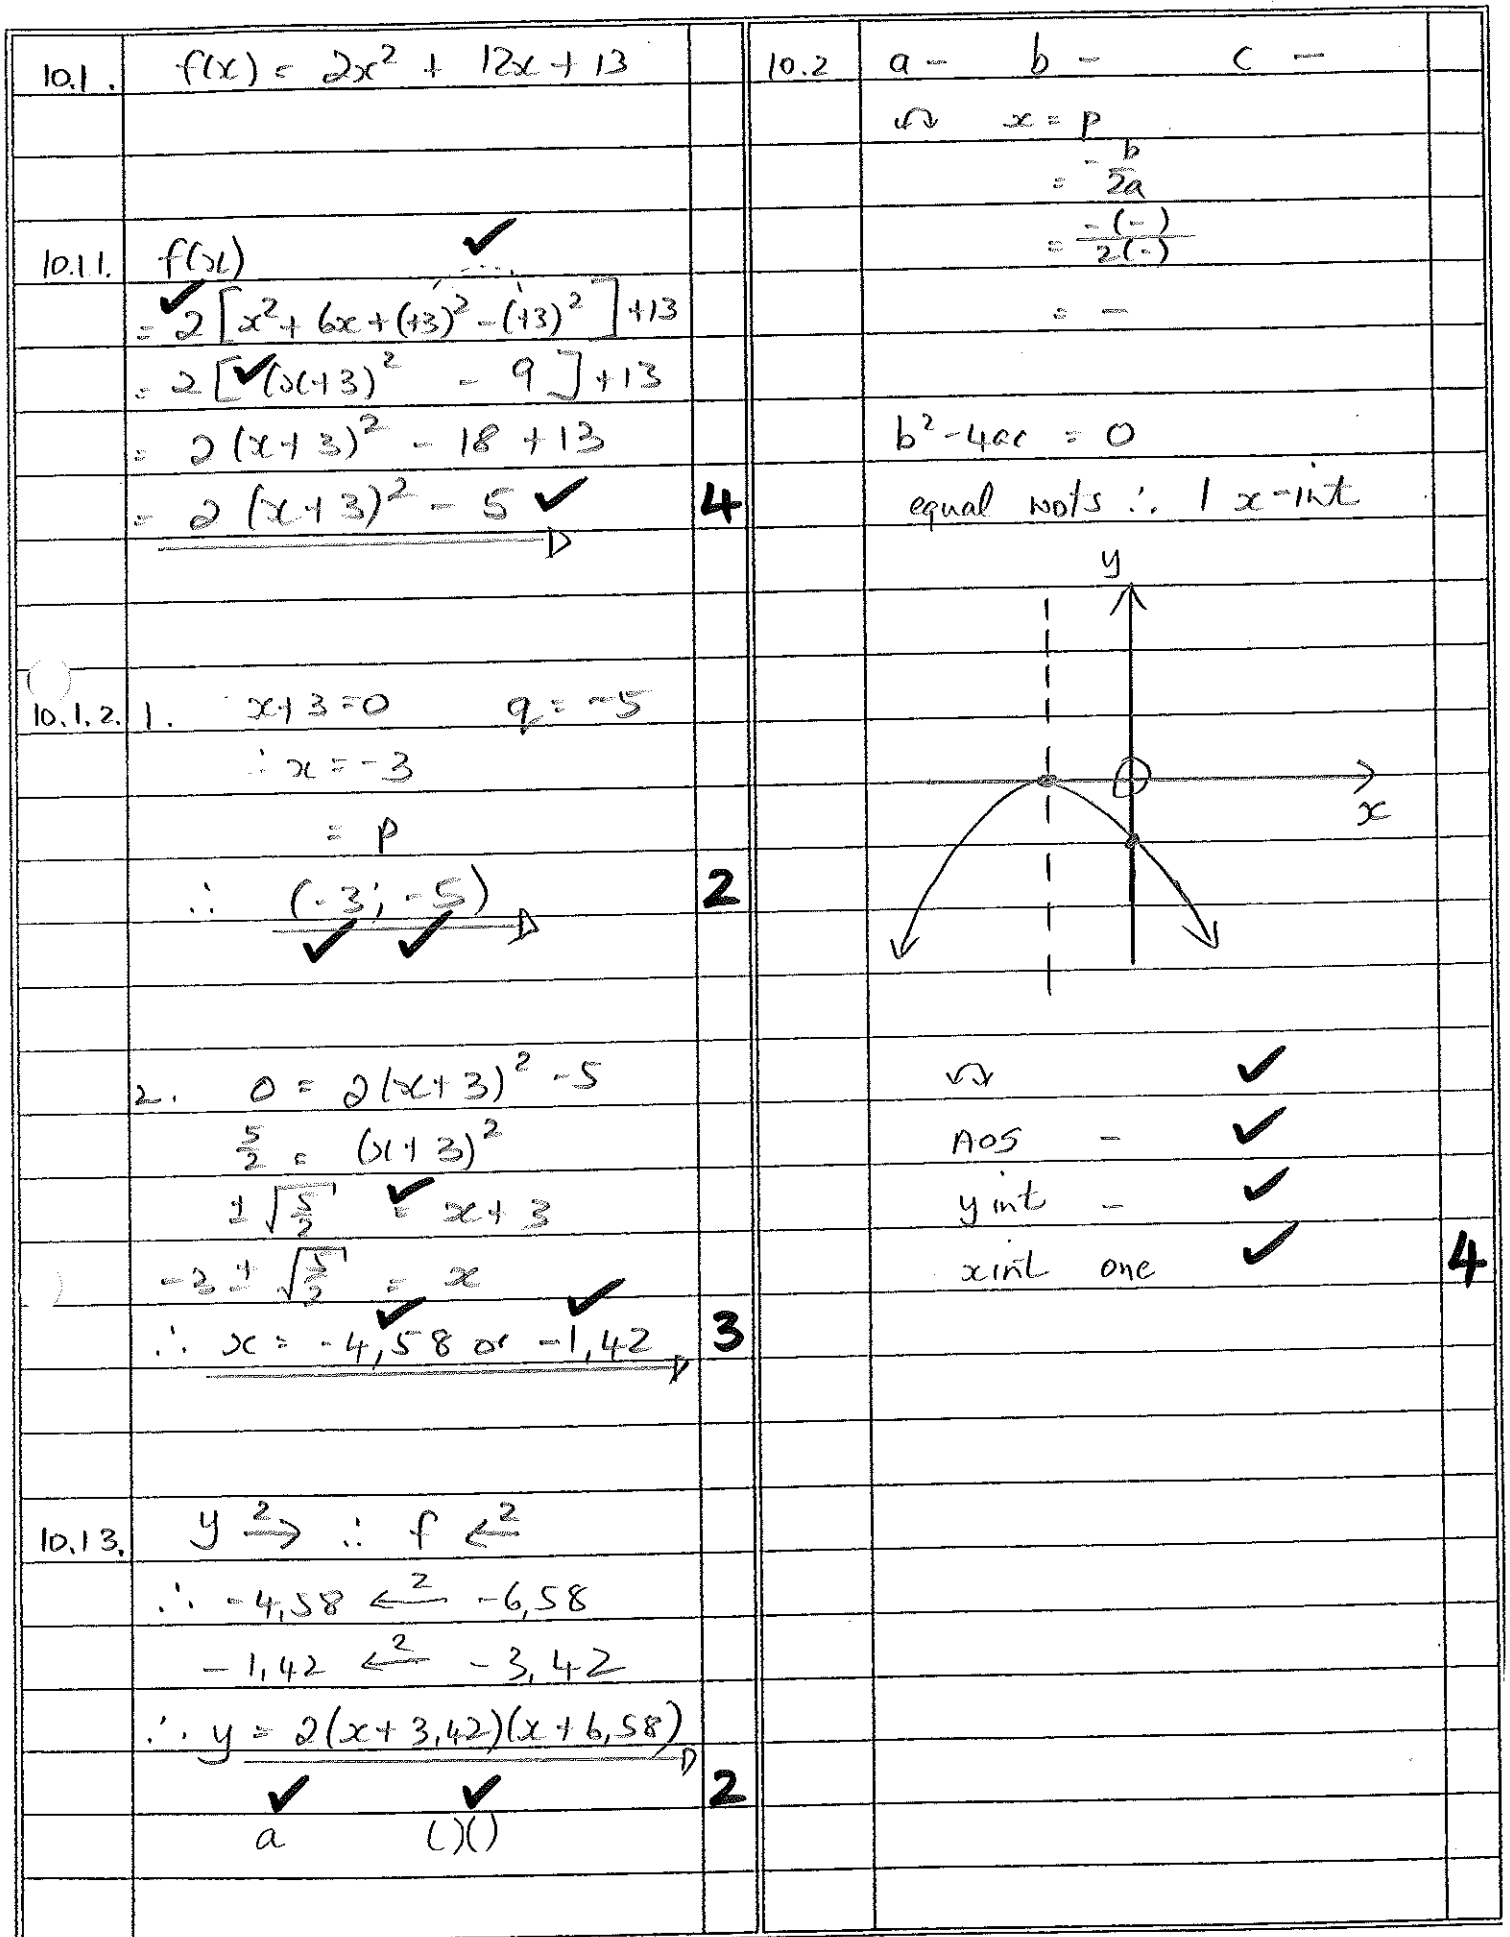 10.1. f(x) = 2x² + 12x + 13
10.1.1. f(x) ✓
✓
= 2[x² + 6x + (+3)² - (+3)²] + 13
= 2[✓(x+3)² - 9] + 13
= 2(x+3)² - 18 + 13
= 2(x+3)² - 5 ✓ 4
10.1.2. 1. x+3=0 q = -5
∴ x = -3
= p
∴ (-3; -5) 2
✓ ✓
2. 0 = 2(x+3)² - 5
5/2 = (x+3)²
±√(5/2) = ✓ x+3
-3 ± √(5/2) = x
✓ ✓
∴ x = -4,58 or -1,42 3
10.1 3. y →2 ∴ f ←2
∴ -4,58 ←2 -6,58
-1,42 ←2 -3,42
∴ y = 2(x+3,42)(x+6,58)
✓ ✓ 2
a ( )( )
10.2 a - b - c -
x = p
= -b/2a
= -(-)/2(-)
= -
b²-4ac = 0
equal roots ∴ 1 x-int
y
x
✓
AOS - ✓
y int - ✓
x int one ✓ 4